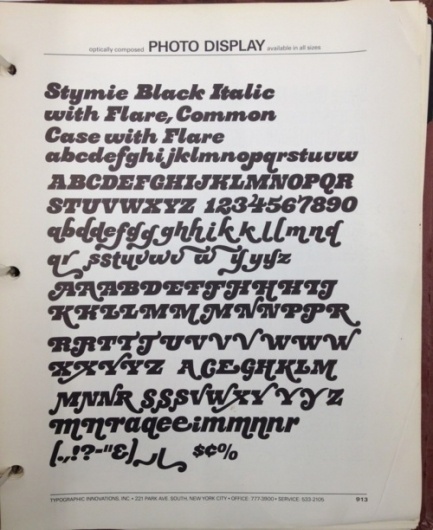 optically composed PHOTO DISPLAY available in all sizes
Stymie Black Italic
with Flare, Common
Case with Flare
abcdefghijklmnopqrstuvw
ABCDEFGHIJKLMNOPQR
STUVWXYZ 1234567890
qbddefgggghhikkllmnq
qr sstuvwv w yyyz
AAABDEFFHHHIJ
KKLLMMMNNPPR
RRTTTUVVVWWW
XXYYYZ ACEGHKLM
MNNR SSSVWXYYYZ
mnraqeeimmnnr
(.,!?-"&) $¢%
TYPOGRAPHIC INNOVATIONS, INC • 221 PARK AVE. SOUTH, NEW YORK CITY • OFFICE: 777-3900 • SERVICE: 533-2105 913